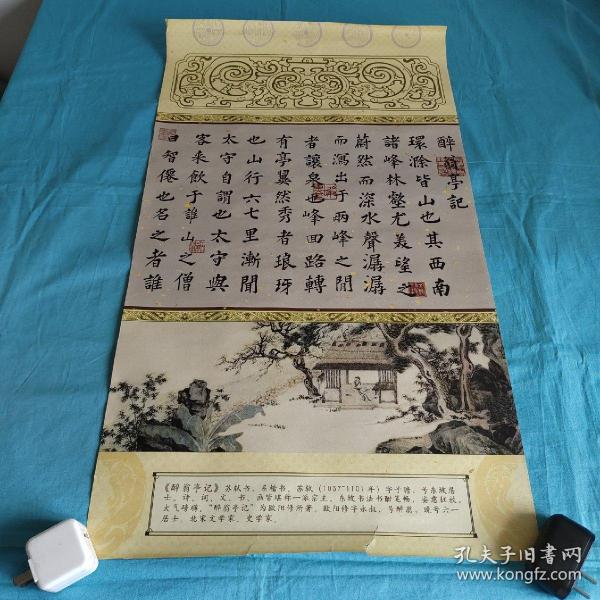 醉翁亭記
環滁皆山也其西南
諸峰林壑尤美望之
蔚然而深水聲潺潺
而瀉出于兩峰之間
者讓泉也峰回路轉
有亭翼然秀者琅玡
也山行六七里漸聞
太守自謂也太守與
客來飲于誰山之僧
曰智僊也名之者誰
《醉翁亭记》苏轼书。宋楷书。苏轼（1037-1101年）字子瞻，号东坡居
士。诗、词、文、书、画皆堪称一派宗主。东坡书法书酣笔畅，姿意狂放，
大气磅礴。“醉翁亭记”为欧阳修所著。欧阳修字永叔，号醉翁，晚号六一
居士，北宋文学家、史学家。
孔夫子旧书网
www.kongfz.com